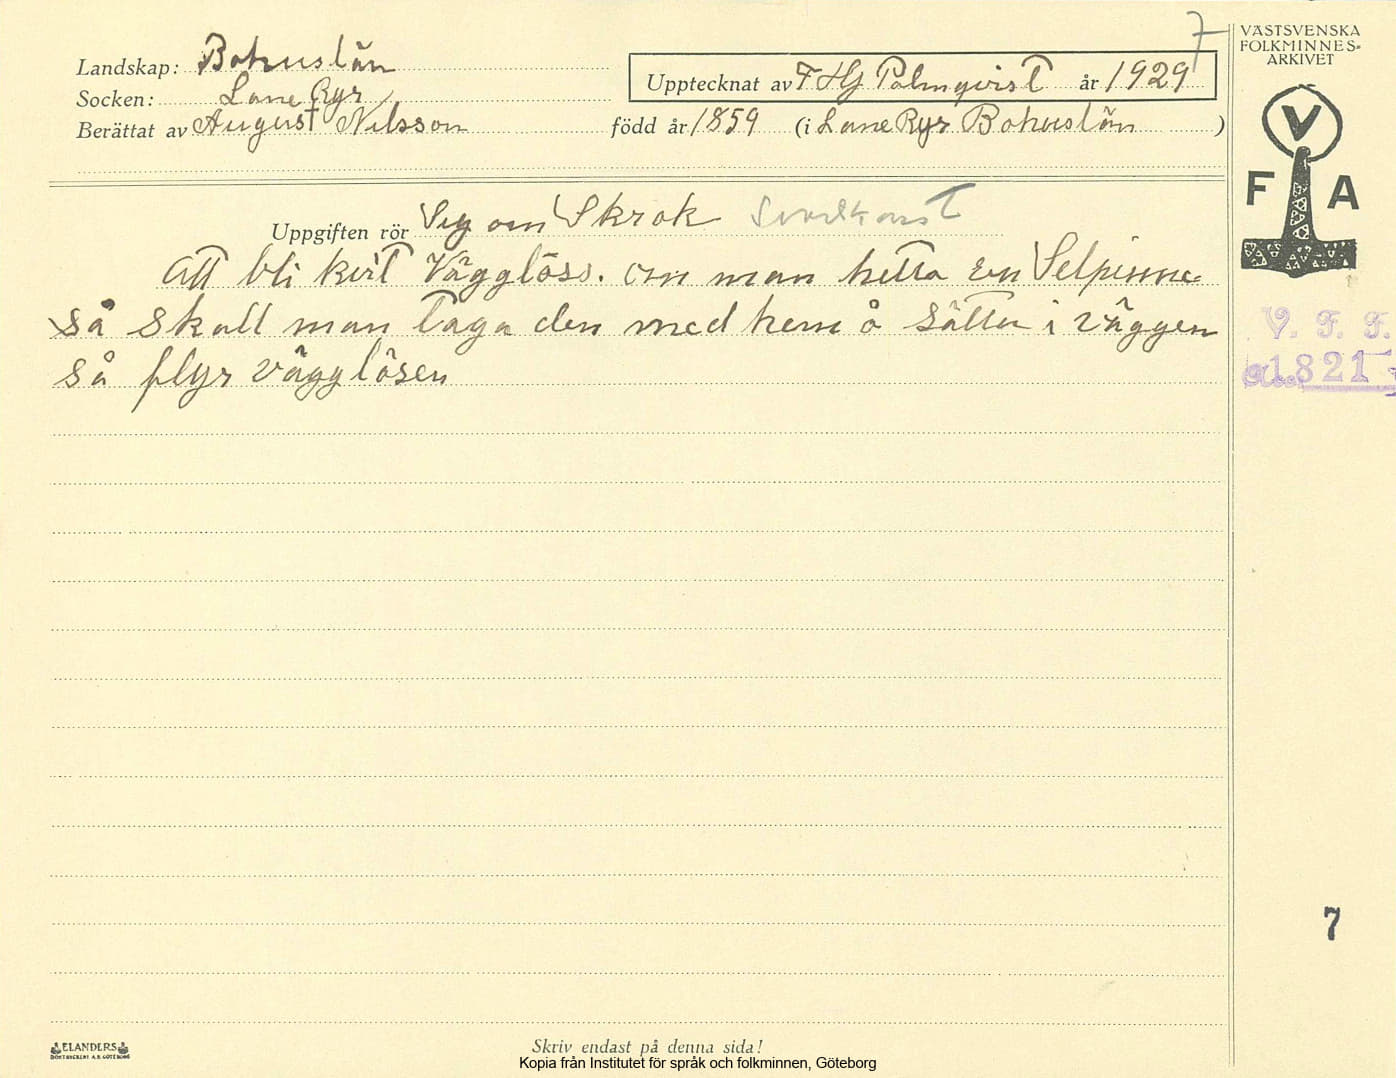 7
VÄSTSVENSKA
FOLKMINNES-
ARKIVET
Landskap: Bohuslän
Upptecknat av F Hj Palmqvist år 1929
Socken: Lane Ryr
Berättat av August Nilsson född år 1859 (i Lane Ryr Bohuslän )
V
F A
Uppgiften rör Seg om Skrok
att bli kvit Vägglöss. om man hetta en Selpinne
så skall man taga den med hem å sätta i väggen
så flyr vägglösen
V. F. F.
1821
7
ELANDERS
BOKTRYCKERI A.B. GÖTEBORG
Skriv endast på denna sida!
Kopia från Institutet för språk och folkminnen, Göteborg